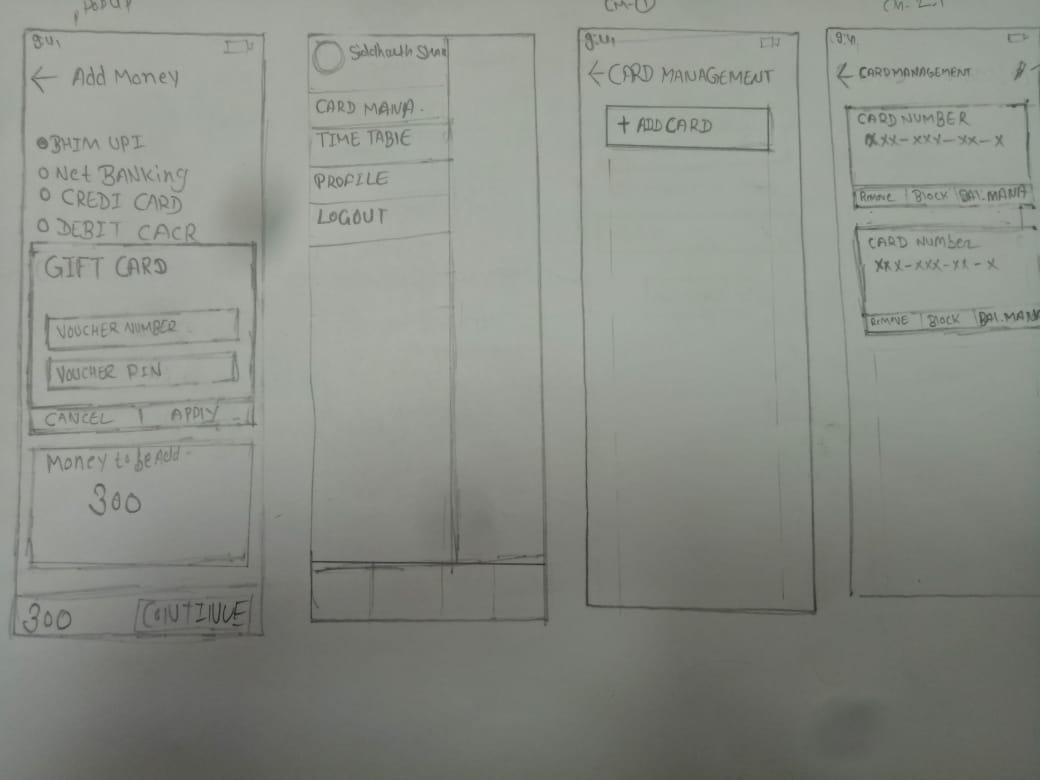 POPUP
9:41
← Add Money
BHIM UPI
Net BANKing
CREDI CARD
DEBIT CACR
GIFT CARD
VOUCHER NUMBER
VOUCHER PIN
CANCEL APPLY
Money to be Add
300
300 CONTINUE
Siddhauth Shar
CARD MANA.
TIME TABLE
PROFILE
LOGOUT
CM-①
9:41
← CARD MANAGEMENT
+ ADD CARD
CM-2.1
9:41
← CARD MANAGEMENT
CARD NUMBER
xxx-xxx-xx-x
Remove Block BAl.MANA
CARD Number
xxx-xxx-xx-x
RemovE Block BAl.MANA